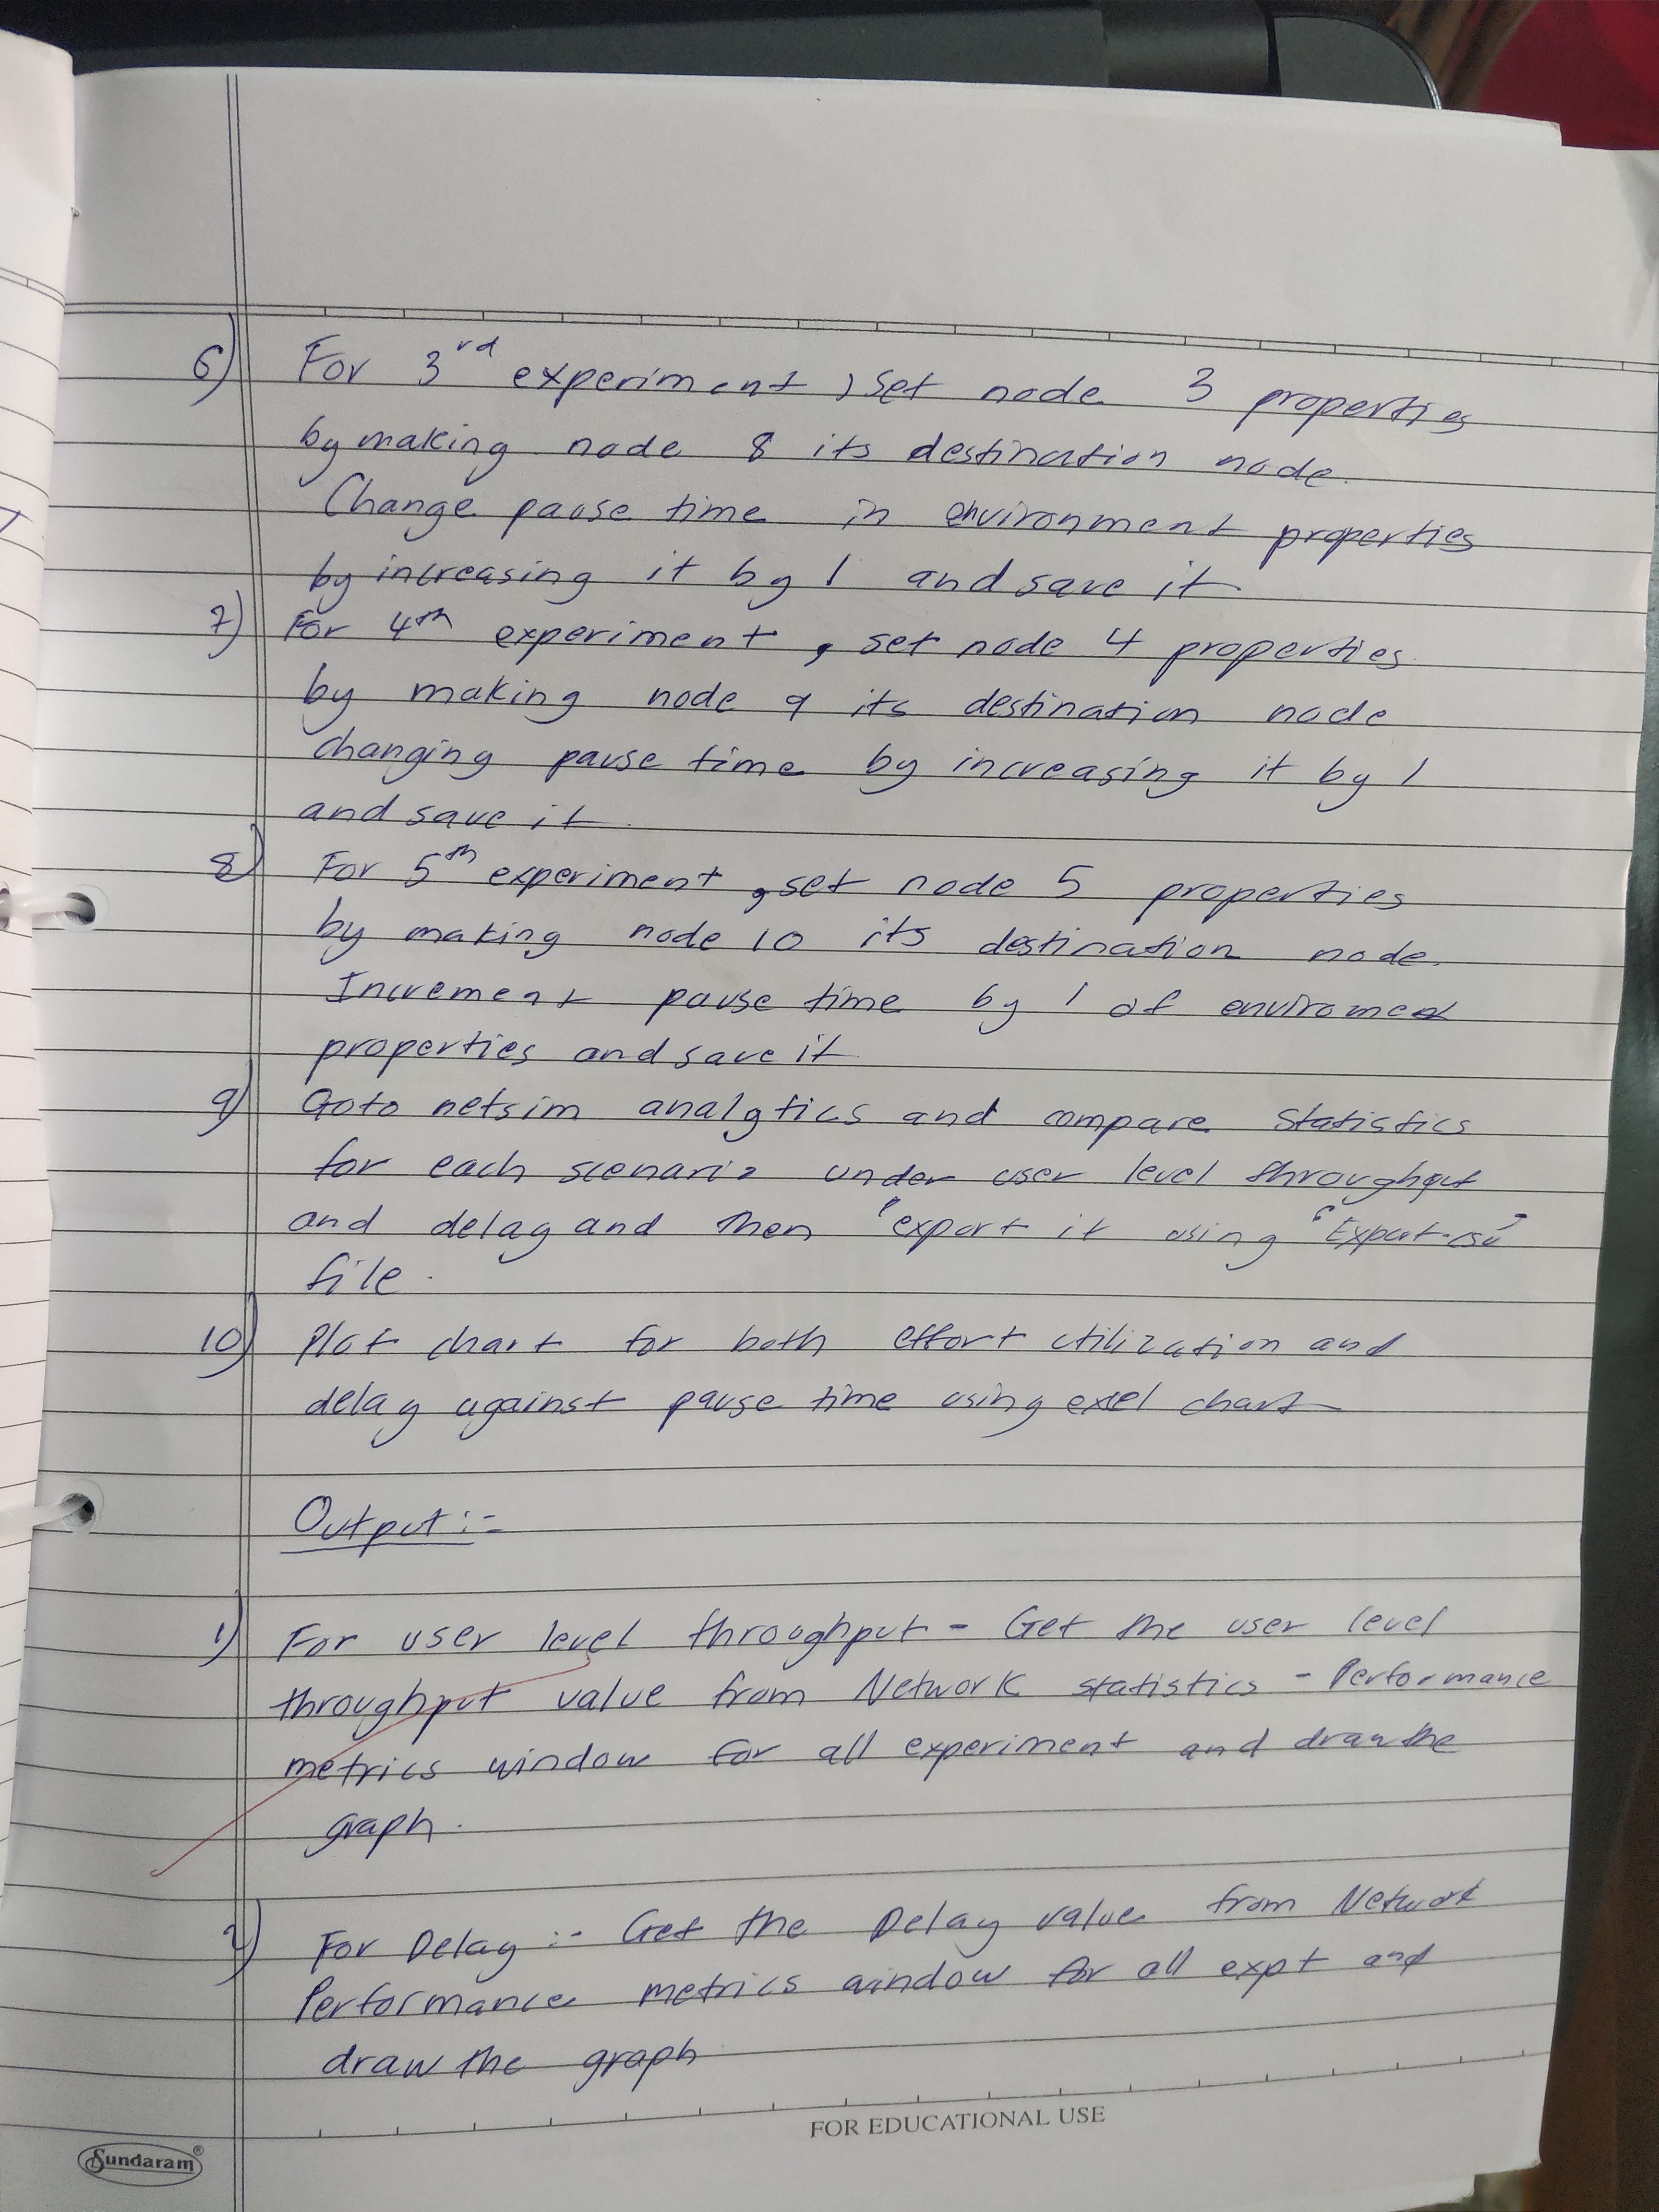 6) For 3rd experiment, set node 3 properties
by making node 8 its destination node.
Change pause time in environment properties
by increasing it by 1 and save it
7) For 4th experiment, set node 4 properties
by making node 9 its destination node
changing pause time by increasing it by 1
and save it.
8) For 5th experiment, set node 5 properties
by making node 10 its destination node.
Increment pause time by 1 of
properties and save it
9) Goto netsim analytics and compare statistics
for each scenario under user level throughput
and delay and then "export it using "Export
file.
10) Plot chart for both effort utilization and
delay against pause time using exel chart
Output :-
1) For user level throughput - Get the user level
throughput value from Network statistics - Performance
metrics window for all experiment and draw the
graph.
2) For Delay :- Get the Delay value from Network
Performance metrics window for all expt and
draw the graph
FOR EDUCATIONAL USE
Sundaram®